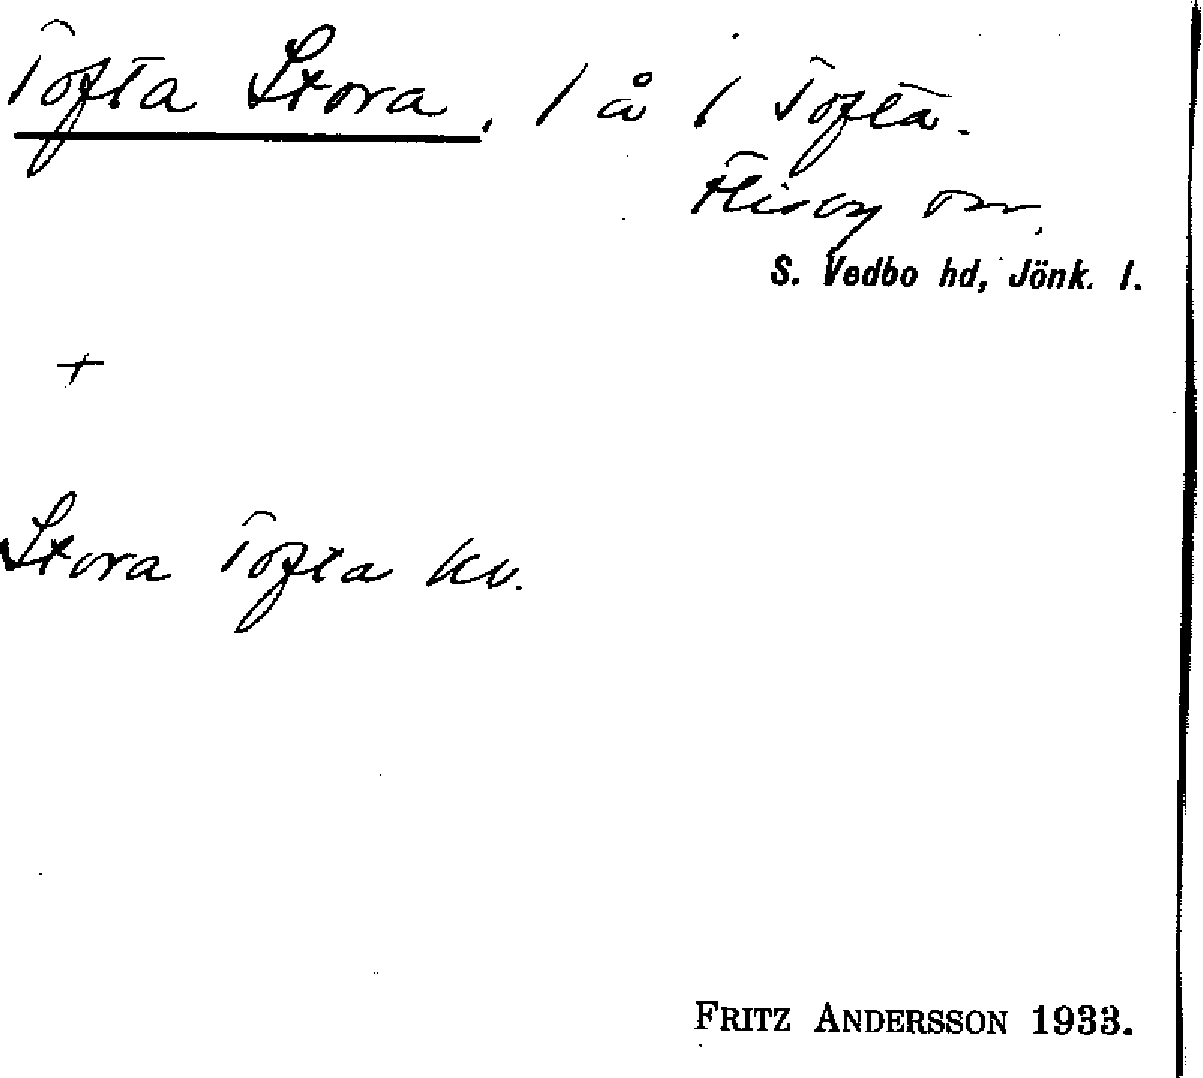 Tofta Stora, / å / Tofta.
Flisby sn,
S. Vedbo hd, Jönk. l.
+
Stora Tofta kv.
FRITZ ANDERSSON 1933.